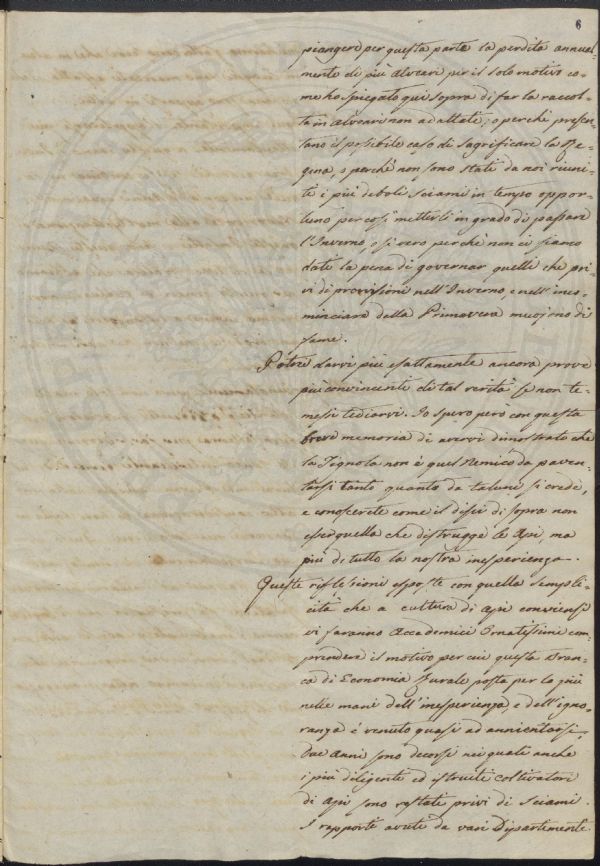 6
piangere per questa parte la perdita annual-
mente di più Alveari per il solo motivo co-
me ho spiegato qui sopra di far la raccol-
ta in Alveari non adattati; o perchè presen-
tano il possibile caso di sagrificare la Re-
gina, o perchè non sono stati da noi riuni-
ti i più deboli Sciami in tempo oppor-
tuno per così metterli in grado di passare
l'Inverno, o sivero perchè non ci siamo
dati la pena di governar quelli che pri-
vi di provvisioni nell'Inverno, e nell'inco-
minciare della Primavera muojono di
fame.
Potrei darvi più esattamente ancora prove
più convincenti di tal verità se non te-
messi tediarvi. Io spero però con questa
breve memoria di avervi dimostrato che
la Tignola non è quel Nemico da paven-
tarsi tanto quanto da taluni si crede,
e conoscerete come il dissi di sopra non
esser quella che distrugge le Api, ma
più di tutto la nostra inesperienza.
Queste riflessioni esposte con quella sempli-
cità che a cultura di Api conviensi
vi faranno Accademici Ornatissimi com-
prendere il motivo per cui questa Bran-
ca di Economia Rurale posta per lo più
nelle mani dell'inesperienza, e dell'igno-
ranza è venuto quasi ad annientarsi.
Due Anni sono decorsi nei quali anche
i più diligenti ed istruiti coltivatori
di Api sono restati privi di Sciami.
I rapporti avuti da vari Dipartimenti